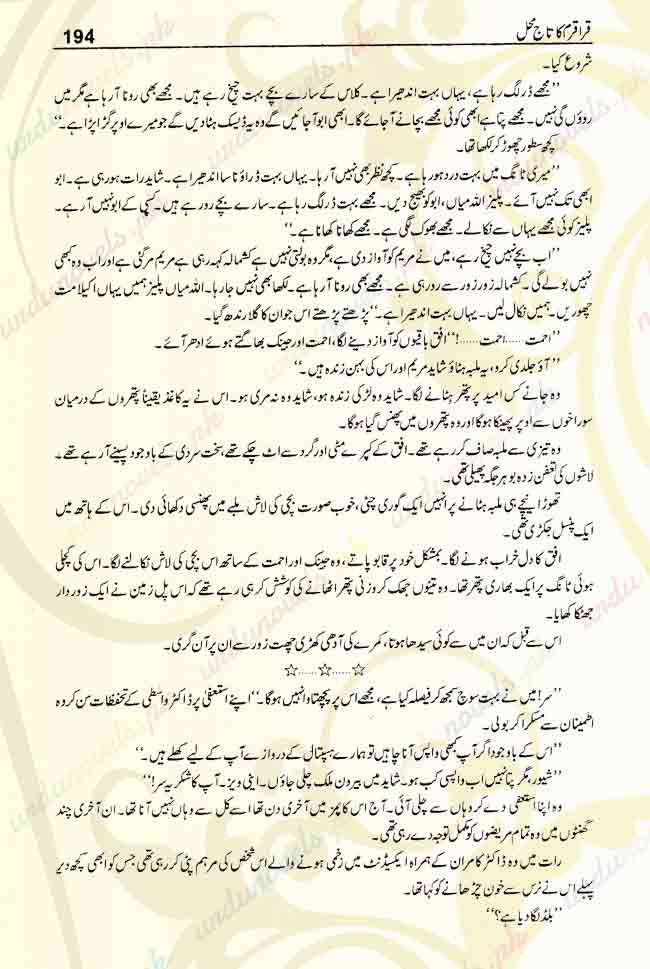 قراقرم کا تاج محل
194
شروع کیا۔
”مجھے ڈر لگ رہا ہے، یہاں بہت اندھیرا ہے۔ کلاس کے سارے بچے بہت چیخ رہے ہیں۔ مجھے بھی رونا آ رہا ہے مگر میں
روؤں گی نہیں۔ مجھے پتا ہے ابھی کوئی مجھے بچانے آ جائے گا۔ ابھی ابو آ جائیں گے وہ یہ ڈیسک ہٹا دیں گے جو میرے اوپر گرا پڑا ہے۔“
کچھ سطور چھوڑ کر لکھا تھا۔
”میری ٹانگ میں بہت درد ہو رہا ہے۔ کچھ نظر بھی نہیں آ رہا۔ یہاں بہت ڈراؤنا سا اندھیرا ہے۔ شاید رات ہو رہی ہے۔ ابو
ابھی تک نہیں آئے۔ پلیز اللہ میاں، ابو کو بھیج دیں۔ مجھے بہت ڈر لگ رہا ہے۔ سارے بچے رو رہے ہیں۔ کسی کے ابو نہیں آ رہے۔
پلیز کوئی مجھے یہاں سے نکالے۔ مجھے بھوک لگی ہے۔ مجھے کھانا کھانا ہے۔“
”اب بچے نہیں چیخ رہے، میں نے مریم کو آواز دی ہے، مگر وہ بولتی نہیں ہے کشمالہ کہہ رہی ہے مریم مر گئی ہے اور اب وہ کبھی
نہیں بولے گی۔ کشمالہ زور زور سے رو رہی ہے۔ مجھے بھی رونا آ رہا ہے۔ لکھا بھی نہیں جا رہا۔ اللہ میاں پلیز ہمیں یہاں اکیلا مت
چھوریں۔ ہمیں نکال لیں۔ یہاں بہت اندھیرا ہے۔“ پڑھتے پڑھتے اس جوان کا گلا رندھ گیا۔
”احمت......احمت......!“ افق باقیوں کو آواز دینے لگا، احمت اور جینک بھاگتے ہوئے ادھر آئے۔
”آؤ جلدی کرو، یہ ملبہ ہٹاؤ شاید مریم اور اس کی بہن زندہ ہیں۔“
وہ جانے کس امید پر پتھر ہٹانے لگا۔ شاید وہ لڑکی زندہ ہو، شاید وہ نہ مری ہو۔ اس نے یہ کاغذ یقیناً پتھروں کے درمیان
سوراخوں سے اوپر پھینکا ہوگا اور وہ پتھروں میں پھنس گیا ہوگا۔
وہ تیزی سے ملبہ صاف کر رہے تھے۔ افق کے کپڑے مٹی اور گرد سے اٹ چکے تھے، سخت سردی کے باوجود پسینے آ رہے تھے۔
لاشوں کی تعفن زدہ بو ہر جگہ پھیلی تھی۔
تھوڑا نیچے ہی ملبہ ہٹانے پر انہیں ایک گوری چٹی، خوب صورت بچی کی لاش ملبے میں پھنسی دکھائی دی۔ اس کے ہاتھ میں
ایک پنسل جکڑی تھی۔
افق کا دل خراب ہونے لگا۔ بمشکل خود پر قابو پاتے، وہ جینک اور احمت کے ساتھ اس بچی کی لاش نکالنے لگا۔ اس کی کچلی
ہوئی ٹانگ پر ایک بھاری پتھر تھا۔ وہ تینوں جھک کر وزنی پتھر اٹھانے کی کوشش کر ہی رہے تھے کہ اس پل زمین نے ایک زوردار
جھٹکا کھایا۔
اس سے قبل کہ ان میں سے کوئی سیدھا ہوتا، کمرے کی آدھی کھڑی چھت زور سے ان پر آن گری۔
☆......☆......☆
”سر! میں نے بہت سوچ سمجھ کر فیصلہ کیا ہے، مجھے اس پر پچھتاوا نہیں ہوگا۔“ اپنے استعفیٰ پر ڈاکٹر واسطی کے تحفظات سن کر وہ
اطمینان سے مسکرا کر بولی۔
”اس کے باوجود اگر آپ کبھی واپس آنا چاہیں تو ہمارے ہسپتال کے دروازے آپ کے لیے کھلے ہیں۔“
”شیور، مگر پتا نہیں اب واپسی کب ہو۔ شاید میں بیرون ملک چلی جاؤں۔ اینی ویز۔ آپ کا شکریہ سر!“
وہ اپنا استعفیٰ دے کر وہاں سے چلی آئی۔ آج اس کا پمز میں آخری دن تھا اسے کل سے وہاں نہیں آنا تھا۔ ان آخری چند
گھنٹوں میں وہ تمام مریضوں کو مکمل توجہ دے رہی تھی۔
رات میں وہ ڈاکٹر کامران کے ہمراہ ایکسیڈنٹ میں زخمی ہونے والے اس شخص کی مرہم پٹی کر رہی تھی جس کو ابھی کچھ دیر
پہلے اس نے نرس سے خون چڑھانے کو کہا تھا۔
”بلڈ لگا دیا ہے؟“
urdunovels.pk